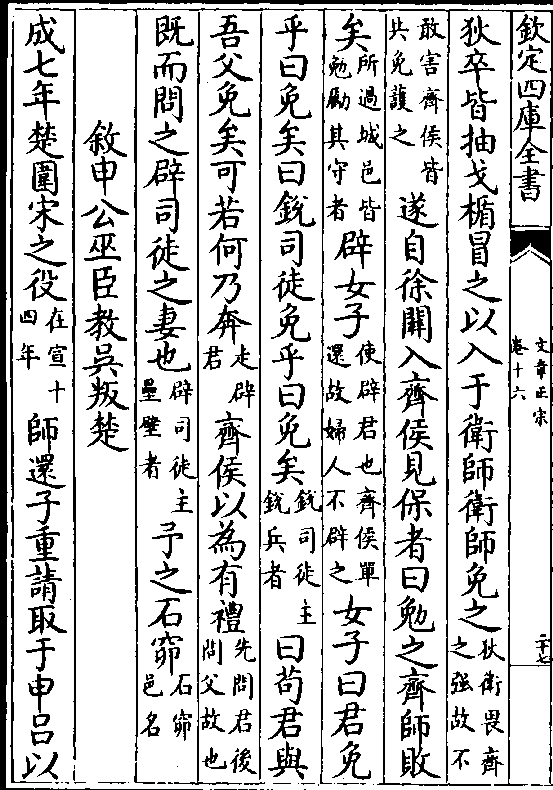 欽定四庫全書
文章正宗
卷十六
二十七
狄卒皆抽戈楯冒之以入于衛師衛師免之狄衛畏齊之强故不
敢害齊侯皆共免護之遂自徐關入齊侯見保者曰勉之齊師敗
矣所過城邑皆勉勵其守者辟女子使辟君也齊侯單還故婦人不辟之女子曰君免
乎曰免矣曰銳司徒免乎曰免矣銳司徒主銳兵者曰苟君與
吾父免矣可若何乃奔走辟君齊侯以為有禮先問君後問父故也
既而問之辟司徒之妻也辟司徒主壘壁者予之石窌石窌邑名
敘申公巫臣教吳叛楚
成七年楚圍宋之役在宣十四年師還子重請取于申呂以